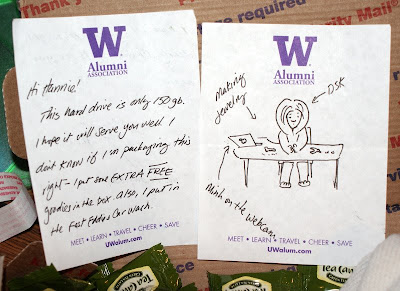 Thank you
required
Mail
required
W
Alumni
ASSOCIATION
Hi Hannie!
This hard drive is only 150 gb.
I hope it will serve you well. I
don't know if I'm packaging this
right - I put some EXTRA FREE
goodies in the box. Also, I put in
the Fast Eddie's Car Wash.
MEET • LEARN • TRAVEL • CHEER • SAVE
UWalum.com
W
Alumni
ASSOCIATION
Making
Jewelry
DSK
Minh, on the Webcam
MEET • LEARN • TRAVEL • CHEER • SAVE
UWalum.com